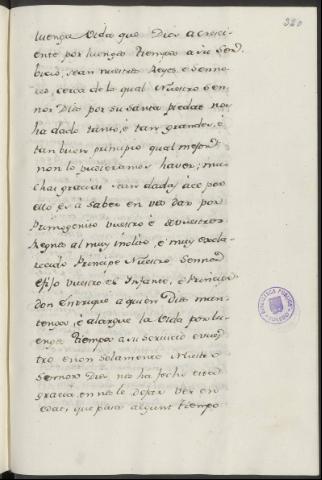 320
luenga Vida que Dios acresci-
ente por luengos tiempos a su Ser-
bicio, sean nuestros Reyes e Senno-
res, cerca de lo qual Nuestro Sen-
nor Dios por su santa piedat nos
ha dado tanto, e tan grande, e
tan buen principio qual mejor
non lo pudieramos haver; mu-
chas gracias sean dadas a el por
ello es a saber en vos dar por
Primogenito vuestro e de vuestros
Regnos al muy inclito, e muy escla-
recido Principe Nuestro Sennor
Fijo vuestro el Infante, e Principe
don Enrique a quien Dios man-
tenga, e alargue la Vida por lu-
engos tiempos a su servicio e vues-
tro e non solamente Nuestro
Sennor Dios nos ha fecho esta
gracia en nos lo dejar ver en
edat, que para algunt tiempo
BIBLIOTECA PUBLICA
TOLEDO